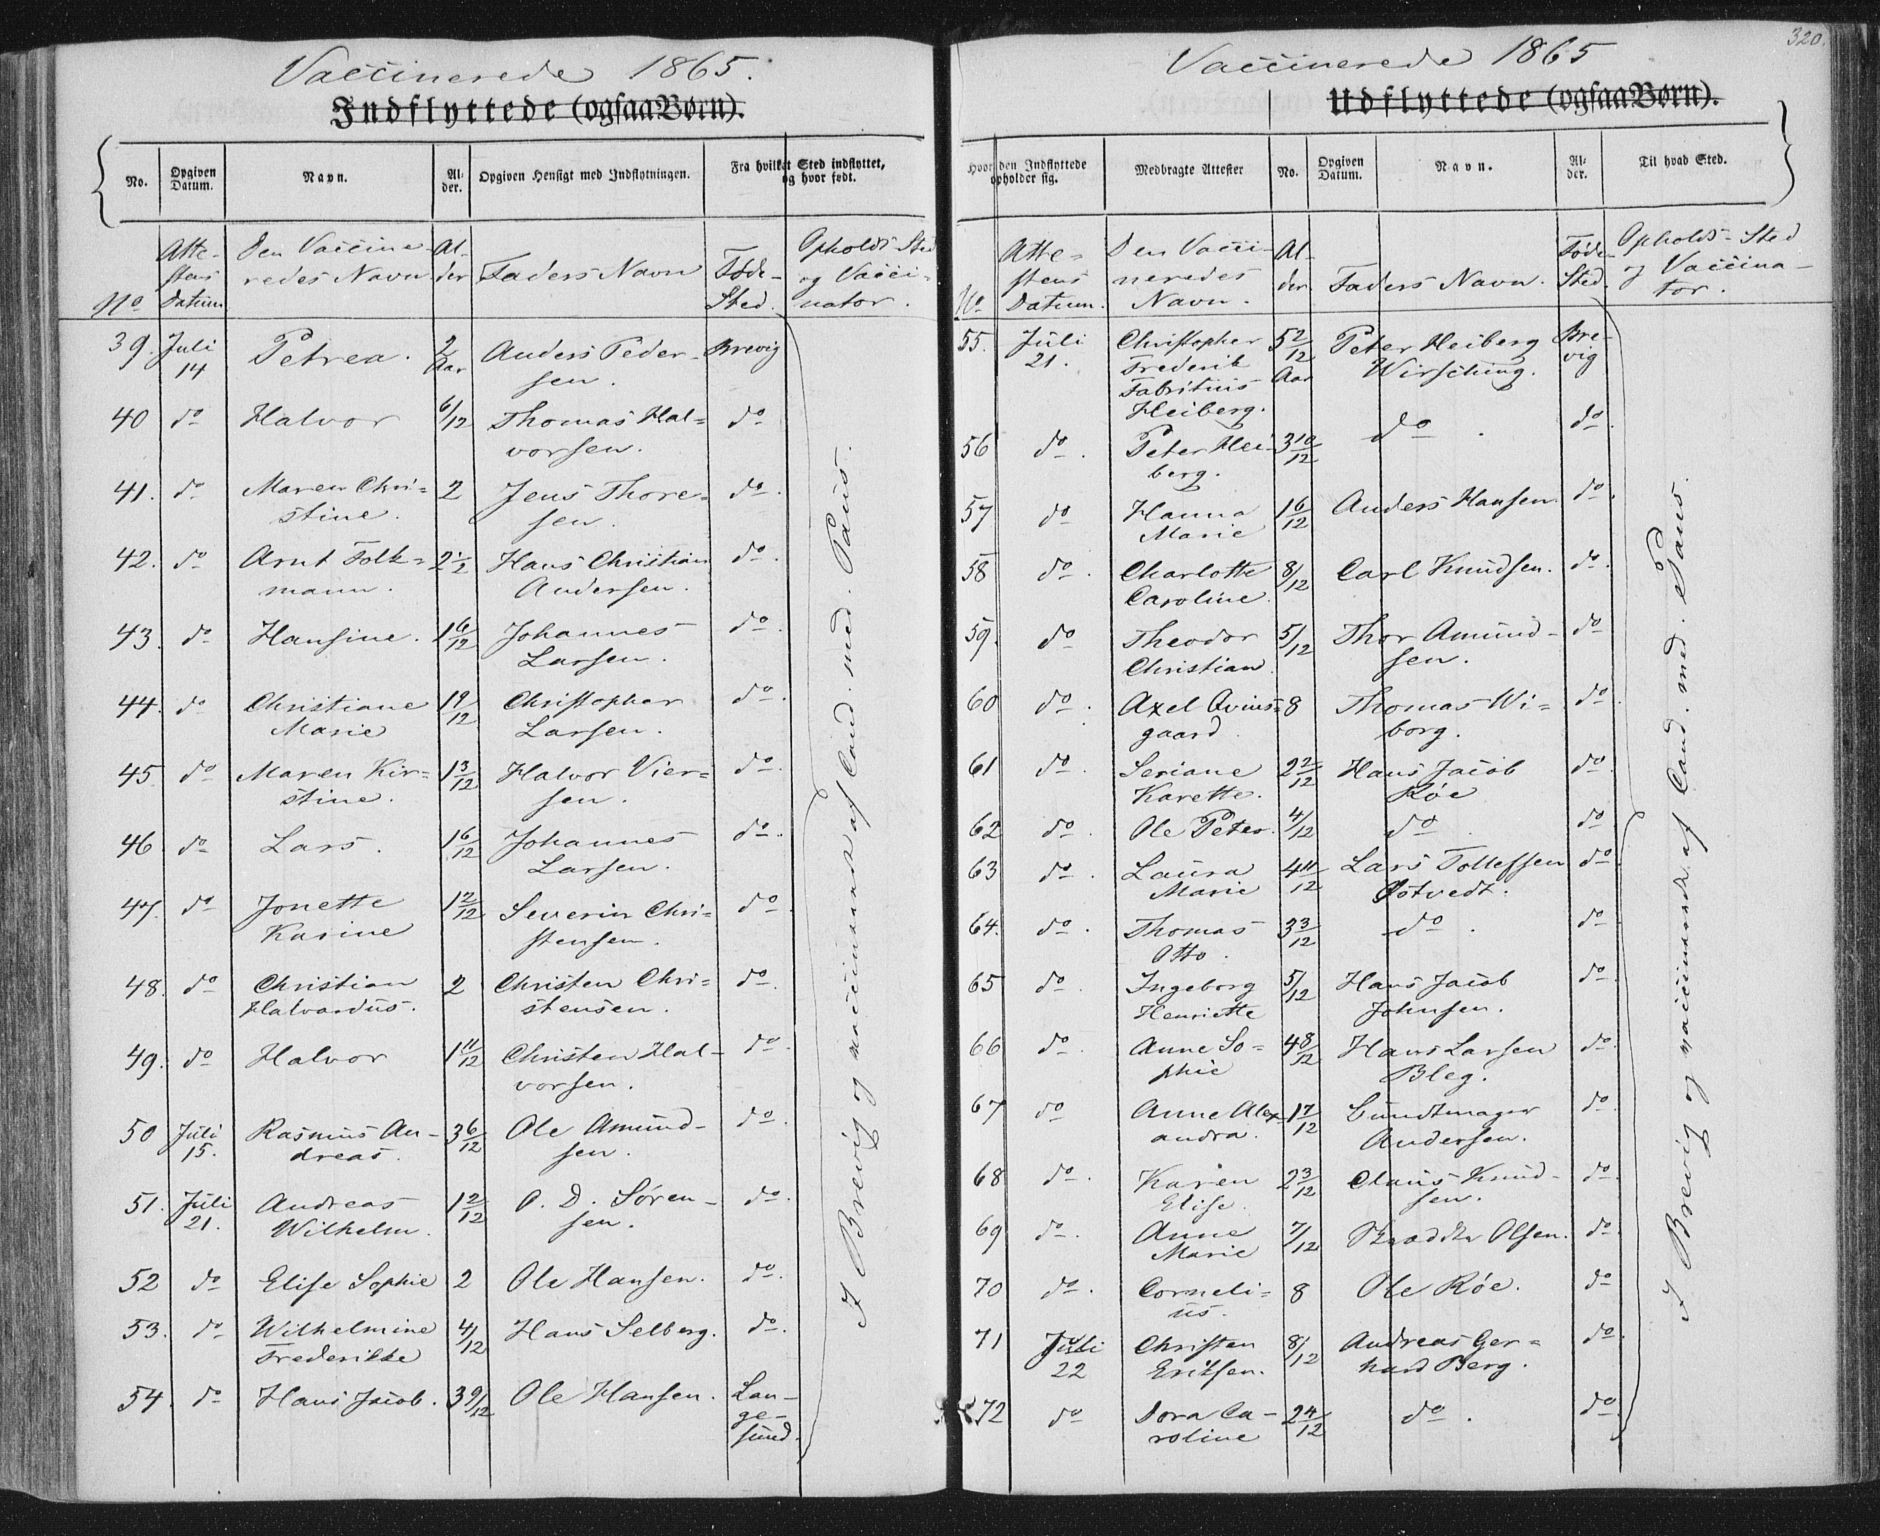 Vaccinerede 1865.
Indflyttede (ogsaa Børn).
No. Opgiven Datum. Navn. Alder. Opgiven Hensigt med Indflytningen. Fra hvilket Sted indflyttet, og hvor født.
No Attestens Datum Den Vaccineredes Navn Alder Faders Navn Føde-Sted. Opholds-Sted og Vaccinator.
39. Juli 14 Petrea. 2 Aar Anders Pedersen. Brevig
40 do Halvor 6/12 Thomas Halvorsen. do
41. do Maren Christine. 2 Jens Thoresen. do.
42. do Arnt Folkmann. 2 1/2 Hans Christian Andersen. do.
43. do Hansine. 1 6/12 Johannes Larsen. do.
44. do Christiane Marie 19/12 Christopher Larsen. do.
45 do Maren Kirstine. 1 3/12 Halvor Viersen. do.
46 do Lars. 1 6/12 Johannes Larsen. do.
47. do Jonette Karine 1 2/12 Severin Christensen. do.
48. do Christian Halvardus. 2 Christen Christensen. do.
49. do Halvor 1 11/12 Christen Halvorsen. do.
50 Juli 15. Rasmus Andreas. 3 6/12 Ole Amundsen. do.
51. Juli 21. Andreas Wilhelm. 1 2/12 O. D. Sørensen. do.
52 do Elise Sophie 2 Ole Hansen. do.
53. do Wilhelmine Frederikke 4/12 Hans Selberg. do.
54. do Hans Jacob. 3 9/12 Ole Hansen. Langesund.
I Brevig og vaccinerede af Cand. med. Paus.
320.
Vaccinerede 1865
Udflyttede (ogsaa Børn).
Hvor den Indflyttede opholder sig. Medbragte Attester No. Opgiven Datum. Navn. Alder. Til hvad Sted.
No Attestens Datum. Den Vaccineredes Navn. Alder Faders Navn. Føde-Sted. Opholds-Sted og Vaccinator.
55. Juli 21. Christopher Frederik Fabritius Heiberg. 5 2/12 Aar Peter Heiberg Wirsching. Brevig
56 do. Peter Heiberg. 3 10/12 do. do.
57 do Hanna Marie 1 6/12 Anders Hansen. do.
58 do. Charlotte Caroline. 8/12 Carl Knudsen. do.
59. do Theodor Christian. 5/12 Thor Amundsen. do
60 do. Axel Qvinsgaard. 8 Thomas Wiborg. do.
61 do. Seriane Karette. 2 2/12 Hans Jacob Røe do
62 do. Ole Peter. 4/12 do. do
63 do. Laura Marie 4 11/12 Lars Tollefsen Ostvedt. do.
64. do. Thomas Otto. 3 3/12 do. do
65 do. Ingeborg Henriette 5/12 Hans Jacob Johnsen. do.
66 do. Anne Sophie 4 8/12 Hans Larsen Bleg. do.
67 do Anne Alexandra. 1 7/12 Bundtmager Andersen. do
68 do. Karen Elise. 2 3/12 Claus Knudsen. do.
69 do. Anne Marie 7/12 Olsen. do
70 do. Cornelius. 8 Ole Røe. do
71 Juli 22 Christen Eriksen. 8/12 Andreas Gerhard Berg. do.
72 do Dora Caroline 2 4/12 do. do.
I Brevig og vaccinerede af Cand. med. Paus.